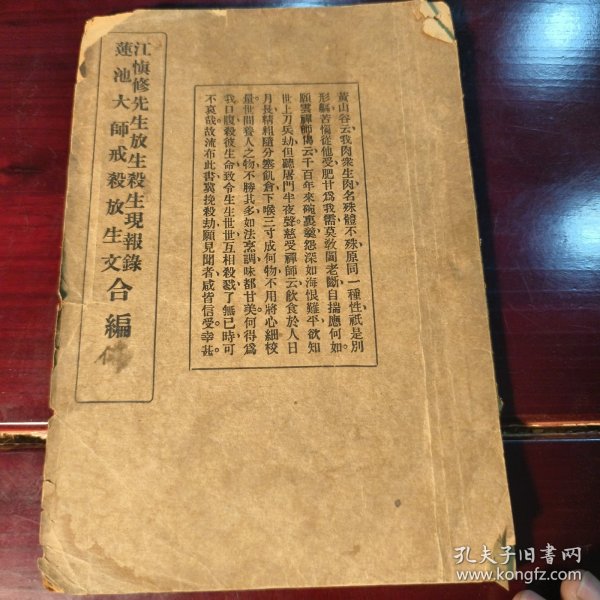 江慎修先生放生殺生現報錄
蓮池大師戒殺放生文
合編
黃山谷云我肉衆生肉名殊體不殊原同一種性祇是別
形軀苦惱從他受肥甘爲我需莫敎閻老斷自揣應何如
願雲禪師偈云千百年來碗裏羹怨深如海恨難平欲知
世上刀兵劫但聽屠門半夜聲慈受禪師云飲食於人日
月長精粗隨分塞飢倉下喉三寸成何物不用將心細校
量世間養人之物不勝其多如法烹調味都甘美何得爲
我口腹殺彼生命致令生生世世互相殺戮了無已時可
不哀哉故流布此書冀挽殺劫願見聞者咸皆信受幸甚
孔夫子旧书网
www.kongfz.com